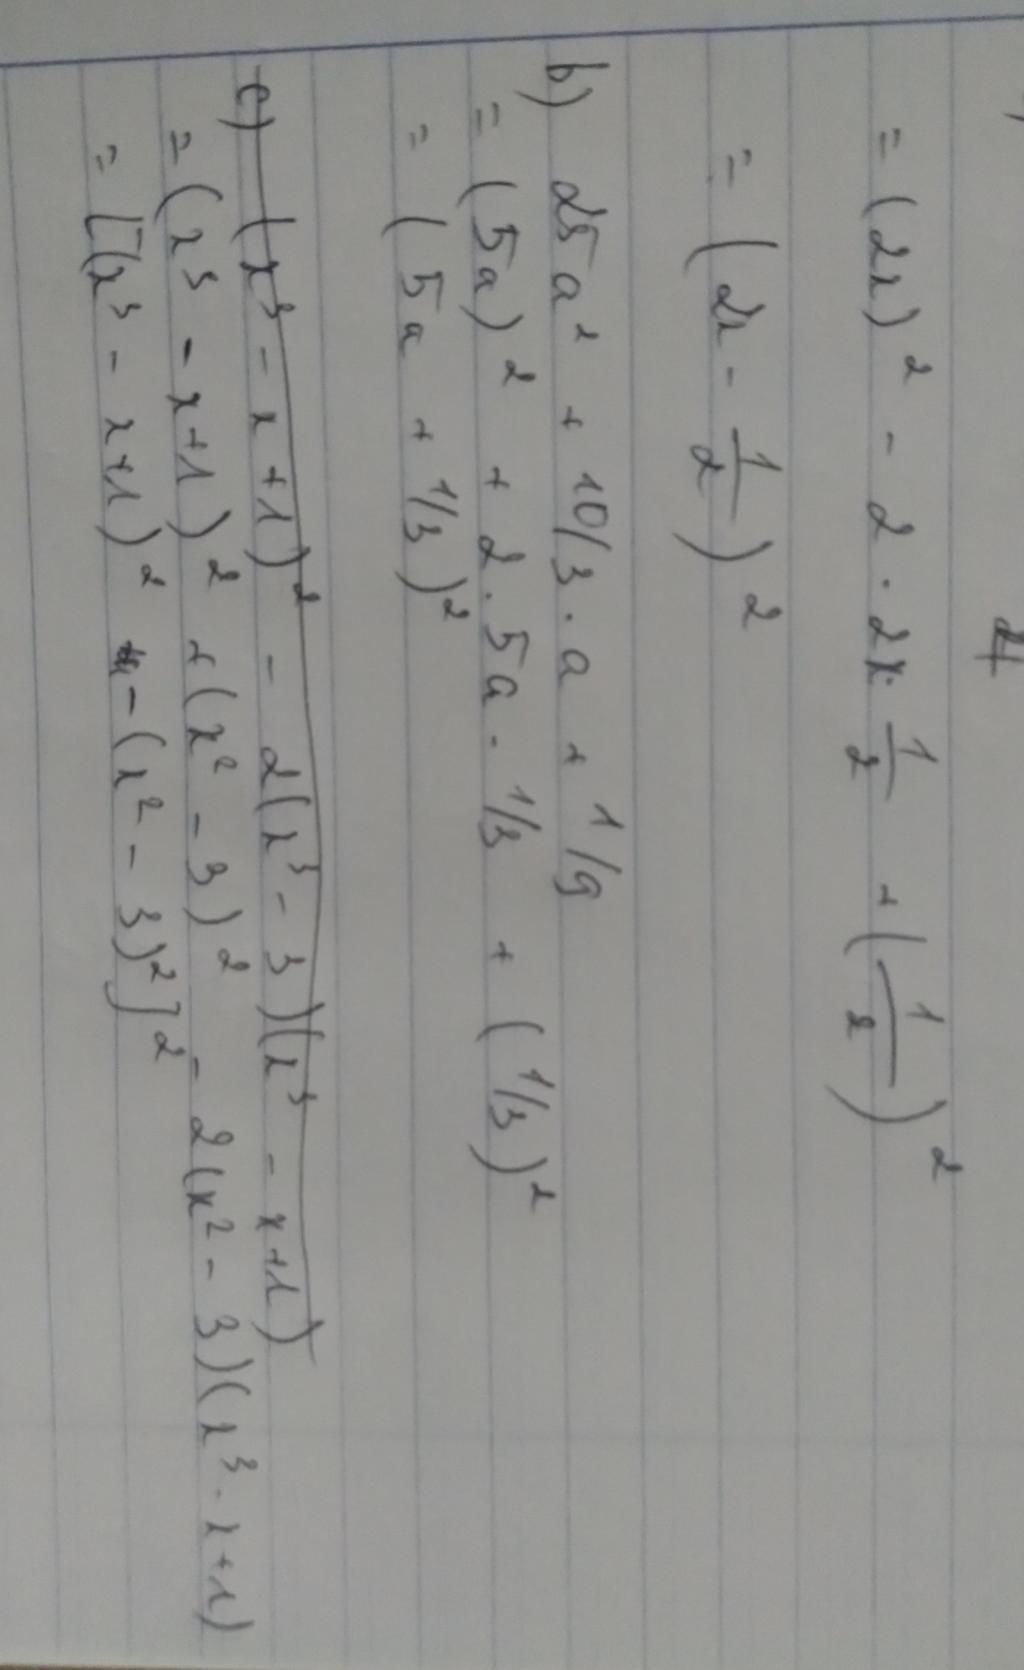 = (2x)² - 2 . 2x . 1/2 + (1/2)²
= (2x - 1/2)²
b) 25a² + 10/3 . a + 1/9
= (5a)² + 2 . 5a . 1/3 + (1/3)²
= (5a + 1/3)²
c) (x³ - x + 1)² - 2(x³ - 3)(x³ - x + 1)
= (x³ - x + 1)² + (x² - 3)² - 2(x² - 3)(x³ - x + 1)
= [(x³ - x + 1)² - (x² - 3)²]²